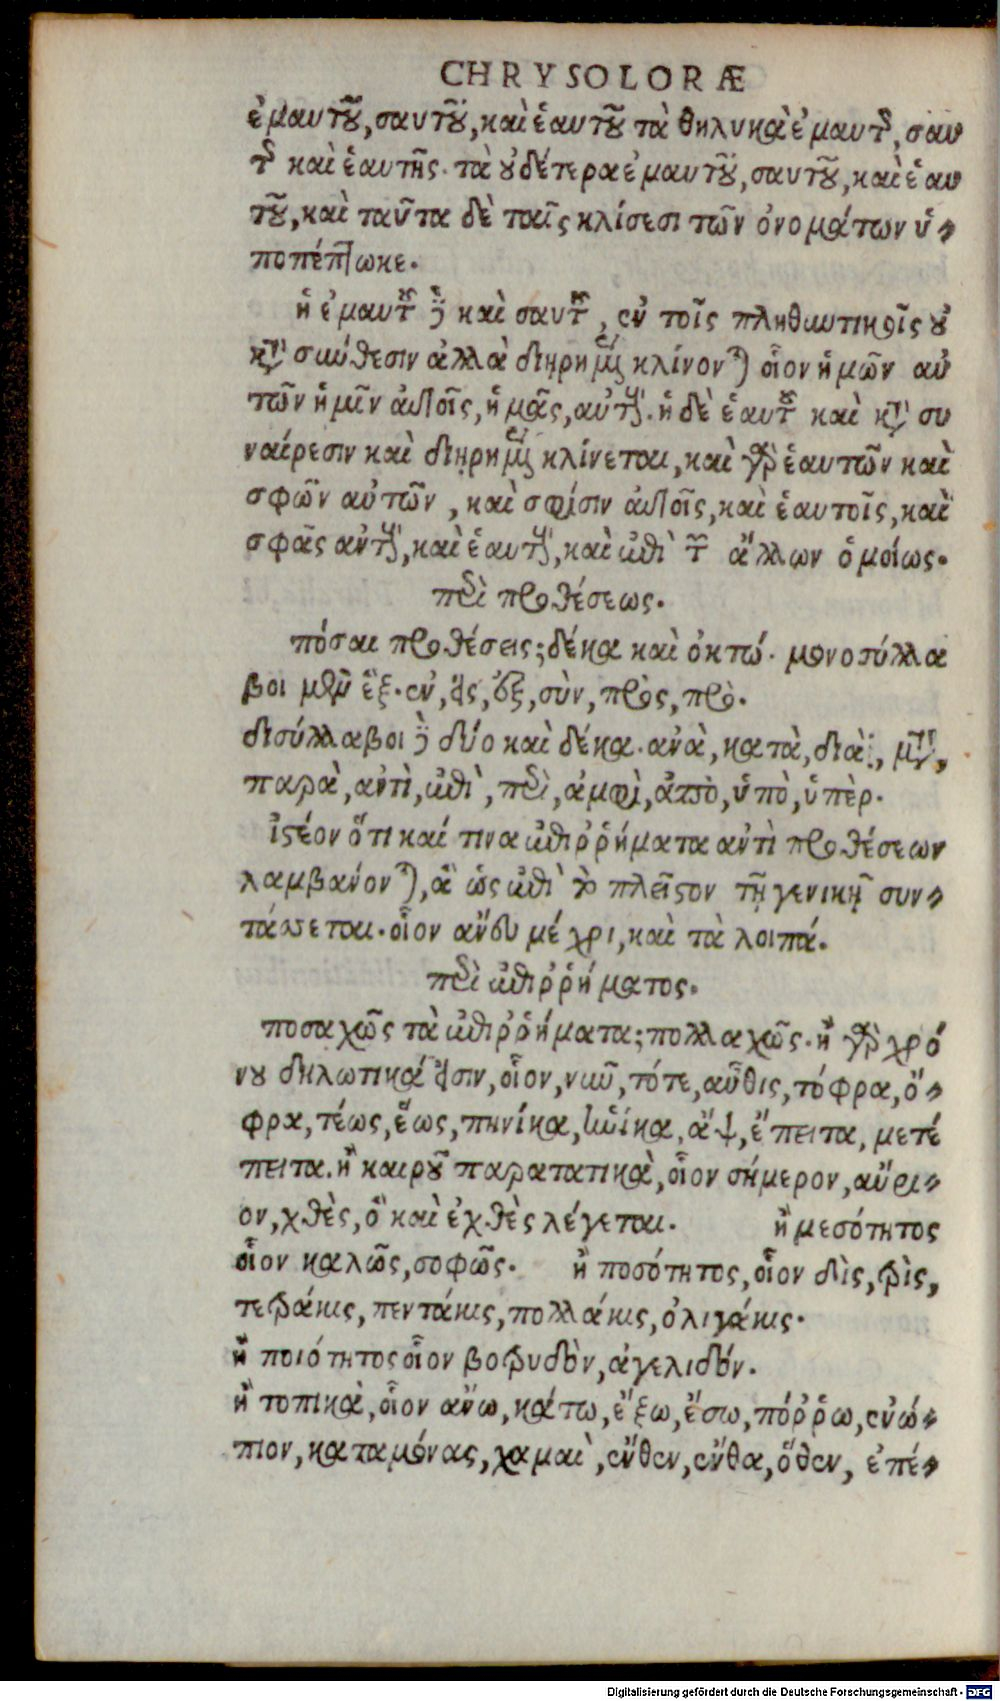 CHRYSOLORÆ
ἐμαυτοῦ, σαυτοῦ, καὶ ἑαυτοῦ τὰ θηλυκὰ ἐμαυτῆς, σαυ
τῆς καὶ ἑαυτῆς. τὰ οὐδέτερα ἐμαυτοῦ, σαυτοῦ, καὶ ἑαυ
τοῦ, καὶ ταῦτα δὲ ταῖς κλίσεσι τῶν ὀνομάτων ὑ-
ποπέπτωκε.
ἡ ἐμαυτοῦ δὲ καὶ σαυτοῦ, ἐν τοῖς πληθωτικοῖς οὐ
κατὰ σύνθεσιν ἀλλὰ διῃρημένως κλίνονται οἷον ἡμῶν αὐ
τῶν ἡμῖν αὐτοῖς, ἡμᾶς, αὐτούς. ἡ δὲ ἑαυτοῦ καὶ κατὰ συ
ναίρεσιν καὶ διῃρημένως κλίνεται, καὶ γὰρ ἑαυτῶν καὶ
σφῶν αὐτῶν, καὶ σφίσιν αὐτοῖς, καὶ ἑαυτοῖς, καὶ
σφᾶς αὐτούς, καὶ ἑαυτούς, καὶ ἐπὶ τῶν ἄλλων ὁμοίως.
περὶ προθέσεως.
πόσαι προθέσεις; δέκα καὶ ὀκτώ. μονοσύλλα
βοι μὲν ἓξ. ἐν, εἰς, ἐξ, σὺν, πρὸς, πρὸ.
δισύλλαβοι δὲ δύο καὶ δέκα. ἀνὰ, κατὰ, διὰ, μετὰ,
παρὰ, ἀντὶ, ἐπὶ, περὶ, ἀμφὶ, ἀπὸ, ὑπὸ, ὑπὲρ.
ἰστέον ὅτι καί τινα ἐπιῤῥήματα ἀντὶ προθέσεων
λαμβάνονται, ἃ ὡς ἐπὶ τὸ πλεῖστον τῇ γενικῇ συν-
τάσσεται. οἷον ἄνευ μέχρι, καὶ τὰ λοιπά.
περὶ ἐπιῤῥήματος.
ποσαχῶς τὰ ἐπιῤῥήματα; πολλαχῶς. ἢ γὰρ χρό
νου δηλωτικά εἰσιν, οἷον, νῦν, τότε, αὖθις, τόφρα, ὄ-
φρα, τέως, ἕως, πηνίκα, ἡνίκα, ἂψ, ἔπειτα, μετέ
πειτα. ἢ καιροῦ παρατατικὰ, οἷον σήμερον, αὔρι-
ον, χθὲς, ὃ καὶ ἐχθὲς λέγεται. ἢ μεσότητος
οἷον καλῶς, σοφῶς. ἢ ποσότητος, οἷον δὶς, τρὶς,
τετράκις, πεντάκις, πολλάκις, ὀλιγάκις.
ἢ ποιότητος οἷον βοτρυδὸν, ἀγεληδόν.
ἢ τοπικὰ, οἷον ἄνω, κάτω, ἔξω, ἔσω, πόῤῥω, ἐνώ-
πιον, καταμόνας, χαμαὶ, ἔνθεν, ἔνθα, ὅθεν, ἐπέ-
Digitalisierung gefördert durch die Deutsche Forschungsgemeinschaft - DFG